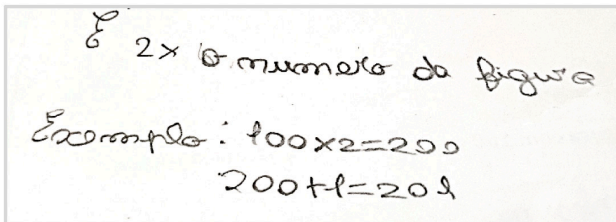 É 2x o numero da figura
Exemplo: 100x2=200
200+1=201